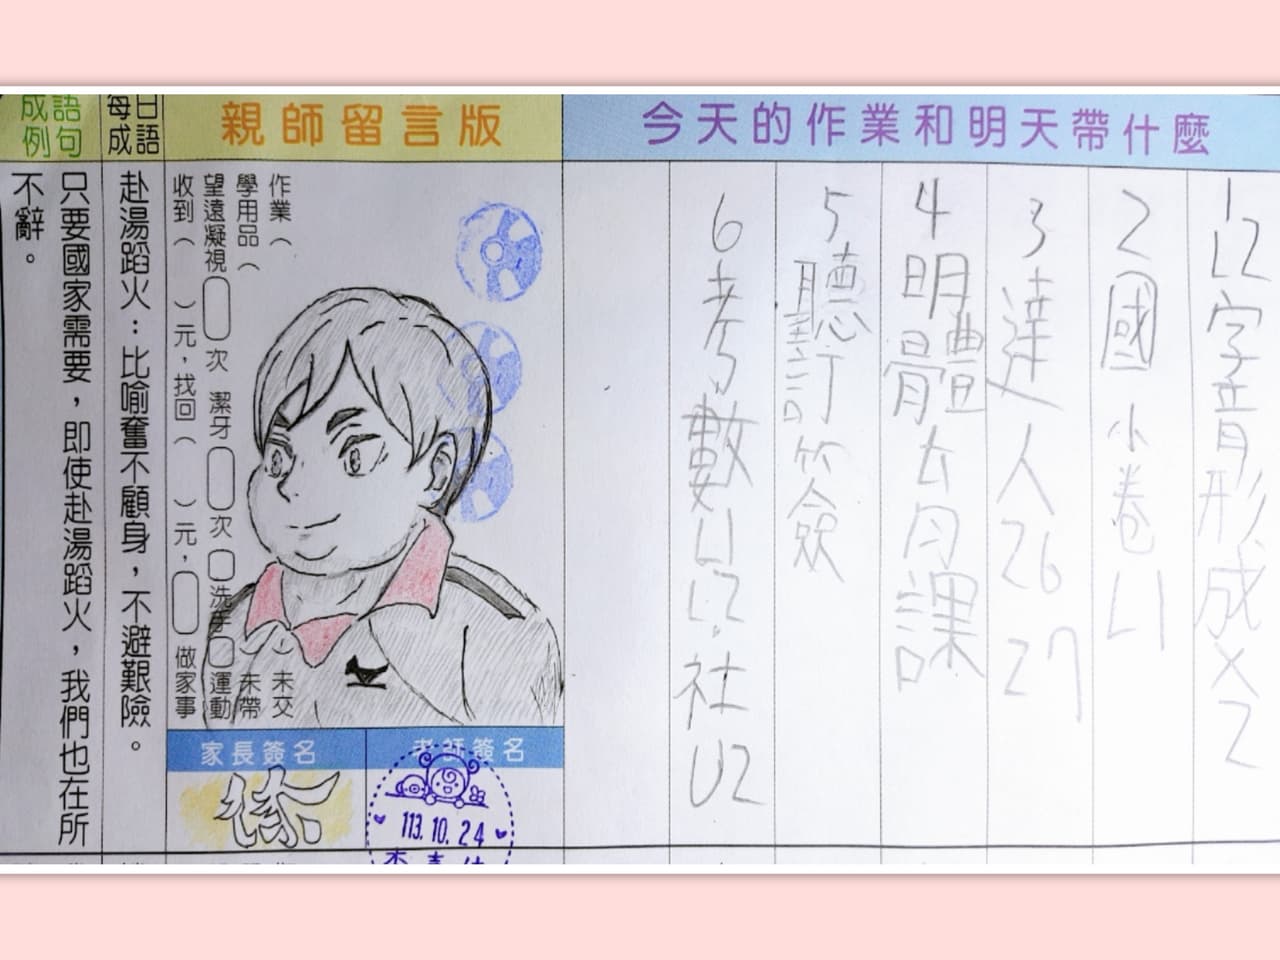 今天的作業和明天帶什麼
1 L2字音形成×2
2 國小卷L1
3 達人26 27
4 明體育課
5 聽訂簽
6 考數L1 L2.社U2
親師留言版
作業（　）未交
學用品（　）未帶
望遠凝視 次 潔牙 次 洗手 運動
收到（　）元，找回（　）元， 做家事
家長簽名
徐
老師簽名
113.10.24
每日成語
赴湯蹈火：比喻奮不顧身，不避艱險。
成語例句
只要國家需要，即使赴湯蹈火，我們也在所
不辭。